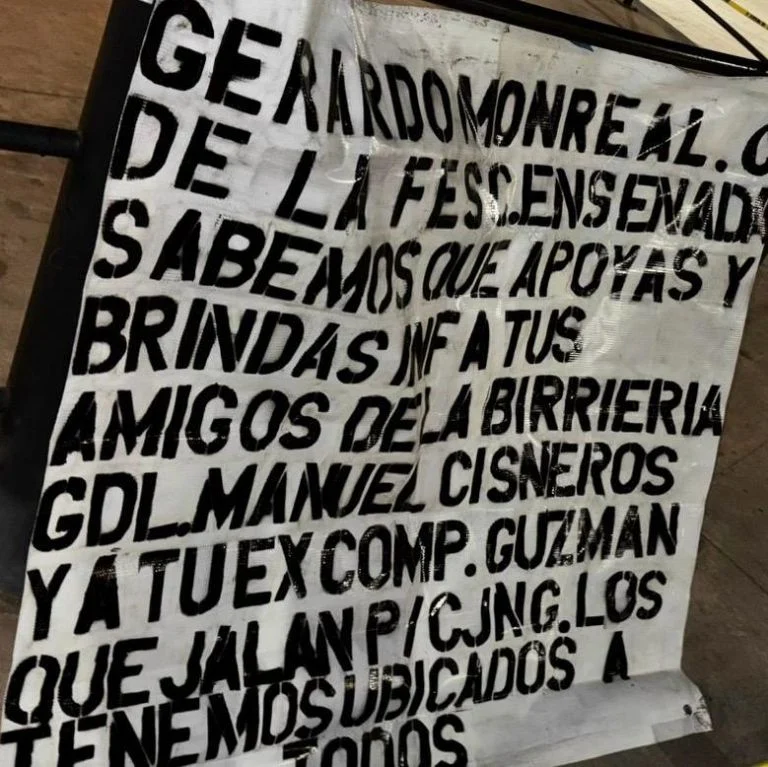 GERARDO MONREAL. C
DE LA FESC.ENSENADA
SABEMOS QUE APOYAS Y
BRINDAS INF A TUS
AMIGOS DE LA BIRRIERIA
GDL.MANUEL CISNEROS
Y A TU EX COMP. GUZMAN
QUE JALAN P/CJNG.LOS
TENEMOS UBICADOS A
TODOS